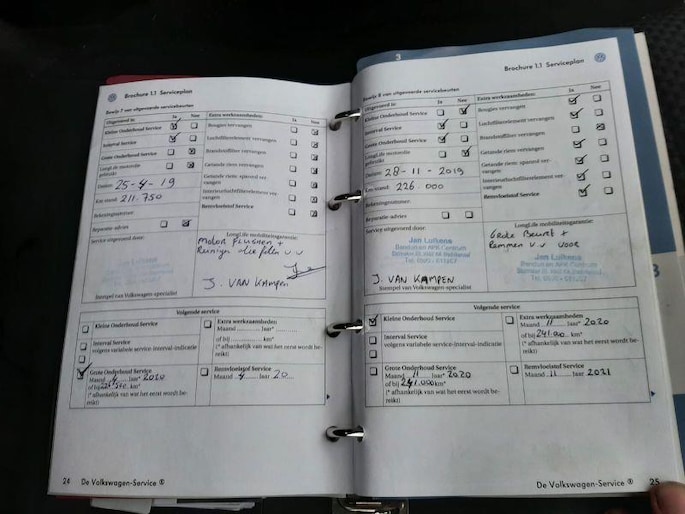 Brochure 1.1 Serviceplan
Bewijs 7 van uitgevoerde servicebeurten
Uitgevoerd is: Ja Nee
Kleine Onderhoud Service
Interval Service
Grote Onderhoud Service
LongLife motorolie
gebruikt
Datum: 25-4-19
Km-stand: 211.750
Bekeuringsnummer:
Reparatie-advies
Service uitgevoerd door:
Stempel van Volkswagen-specialist
Extra werkzaamheden: Ja Nee
Bougies vervangen
Luchtfilterelement vervangen
Brandstoffilter vervangen
Getande riem vervangen
Getande riem spanrol ver-
vangen
Interieurluchtfilterelement ver-
vangen
Remvloeistof Service
LongLife mobiliteitsgarantie:
Motor flushen +
J. VAN KAMPEN
Volgende service
Kleine Onderhoud Service
Interval Service
volgens variabele service-interval-indicatie
Grote Onderhoud Service
Maand 4 jaar* 2020
(* afhankelijk van wat het eerst wordt be-
reikt)
Extra werkzaamheden:
Maand jaar*
of bij km*
(* afhankelijk van wat het eerst wordt be-
reikt)
Remvloeistof Service
Maand 4 jaar 20
24 De Volkswagen-Service ®
3
Brochure 1.1 Serviceplan
Bewijs 8 van uitgevoerde servicebeurten
Uitgevoerd is: Ja Nee
Kleine Onderhoud Service
Interval Service
Grote Onderhoud Service
LongLife motorolie
gebruikt
Datum: 28-11-2019
Km-stand: 226.000
Reparatie-advies
Service uitgevoerd door:
Jan Luikens
Banden en APK Centrum
J. VAN KAMPEN
Stempel van Volkswagen-specialist
Extra werkzaamheden: Ja Nee
Bougies vervangen
Luchtfilterelement vervangen
Brandstoffilter vervangen
Getande riem vervangen
Getande riem spanrol ver-
vangen
Interieurluchtfilterelement vervangen
Remvloeistof Service
LongLife mobiliteitsgarantie:
Grote Beurt +
Remmen v v voor
Volgende service
Kleine Onderhoud Service
Interval Service
volgens variabele service-interval-indicatie
Grote Onderhoud Service
Maand 11 jaar* 2020
of bij 241.000 km*
(* afhankelijk van wat het eerst wordt be-
reikt)
Extra werkzaamheden:
Maand 11 jaar* 2020
of bij 241.000 km*
(* afhankelijk van wat het eerst wordt be-
reikt)
Remvloeistof Service
Maand 11 jaar 2021
De Volkswagen-Service ® 25
3